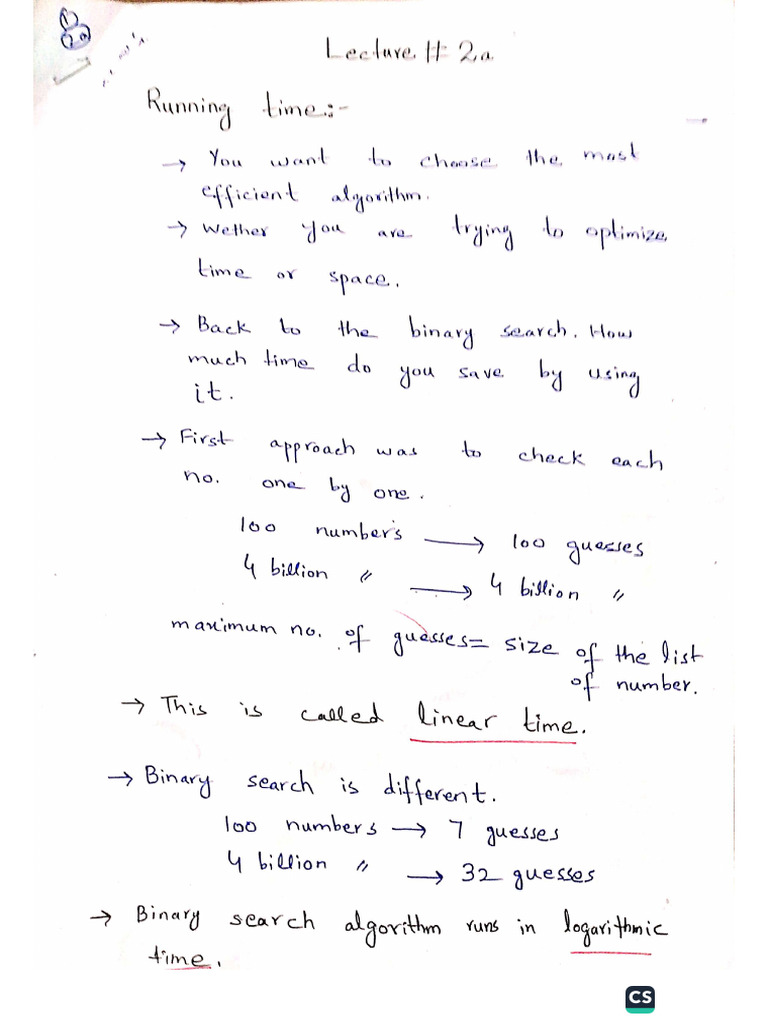 Lecture # 2a
Running time:-
→ You want to choose the most
efficient algorithm.
→ Wether you are trying to optimize
time or space.
→ Back to the binary search. How
much time do you save by using
it.
→ First approach was to check each
no. one by one.
100 numbers → 100 guesses
4 billion 〃 → 4 billion 〃
maximum no. of guesses = size of the list
of number.
→ This is called linear time.
→ Binary search is different.
100 numbers → 7 guesses
4 billion 〃 → 32 guesses
→ Binary search algorithm runs in logarithmic
time.
CS